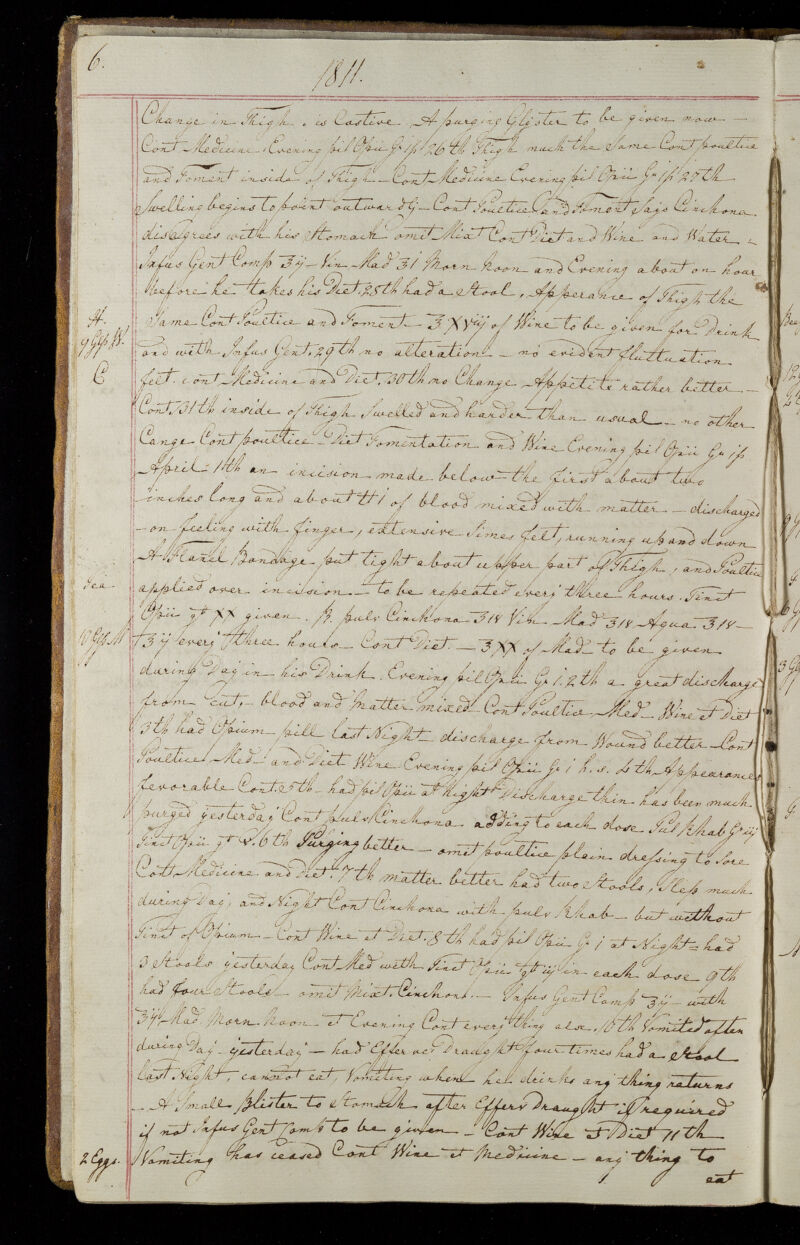 6.
1811.
Change in Thigh. is Costive. A purging Glyster to be given now —
Cont Medicine. Evening pil Opii Gr ifs 26th Thigh much the Same Cont poultice
and Foment inside of Thigh — Cont Medicine Evening pil Opii Gr ifs 27th
Swelling begins to point outwardly — Cont Poultice and Foment Says Cinchona
disagrees with his Stomach omit Mixt Cont Diet and Wine and Water =
Infus Gent Comp ʒij — Vin Mad ʒi Morn Noon and Evening about on hour
before he takes his Diet. 28th had a Stool, Apperance of Thigh the
Same Cont Poultice and Foment ʒXVij of Wine to be given for Drink
and with Infus Gent. 29th no alteration — no evident fluttuation
felt. cont Medicine and Diet. 30th no Change Appetite rather better —
Cont. 31th inside of Thigh Swelled and harder than usual — no other
Cange Cont poultice — Diet Fomentation and Wine Evening pil Opii Gr ifs
April 1th an incision made below the first about two
inches long and about ℔i of blood mixed with matter — discharged
— on feeling with finger, extensive Sines felt, running up and down
A Flanel Bandage put tight about upper part of Thigh, and Poultice
applied over incision — to be repeated every three hours. Tinct
Opii gt XX given. R. pulv Cinchona ʒiv Vin Mad ʒiv Aqua ʒiv —
ʒij every three hours — Cont Diet. — ʒXX of Mad to be given
during Day in his Drink. Evening pil Opii Gr i. 2th a great discharge
from cut, — blood and Matter mixed Cont Poultice Med. Wine et Diet
3th had Opium pill last Night discharge from Wound better — Cont
Poultice Med and Diet Wine Evening pil Opii Gr i h.s. 4th Appearances
favorable Cont. 5th had pil Opii at Night Discharge thin has been much
purged yesterday Cont pulv Cinchona adding to each dose Pul Rhab Gr iij
Tinct Opii gt v. 6th Purging better — omit poultice plain dressing to Sore
Cott Medicine and Diet. 7th matter better had two Stools, Slep much
during Day, and Night Cont Cinchona with pulv Rhab — but without
Tinct of Opium — Cont Wine et Diet. 8th had pil Opii Gr i at Night = had
3 Stools yesterday Cont Med with Tinct Opii gt iij in each dose 9th
had four Stools omit Mixt. Cinchon. — Infus Gent Comp ʒij — with
ʒij Mad. Morn. Noon et Evening Cont every thing else. 10th Vomited often
during Day — yesterday — had Efferves Draught four times had a Stool
last Night, cannot eat, Vomiting when he drinks any thing returns
— A Small Blister to Stomach after Efferv Draught if required
if not Infus Gent Comp to be given — Cont Wine et Diet 11th
Vomiting has ceased Cont Wine et Medicine — any thing to
eat
H.
C
Tea
2 Eggs.